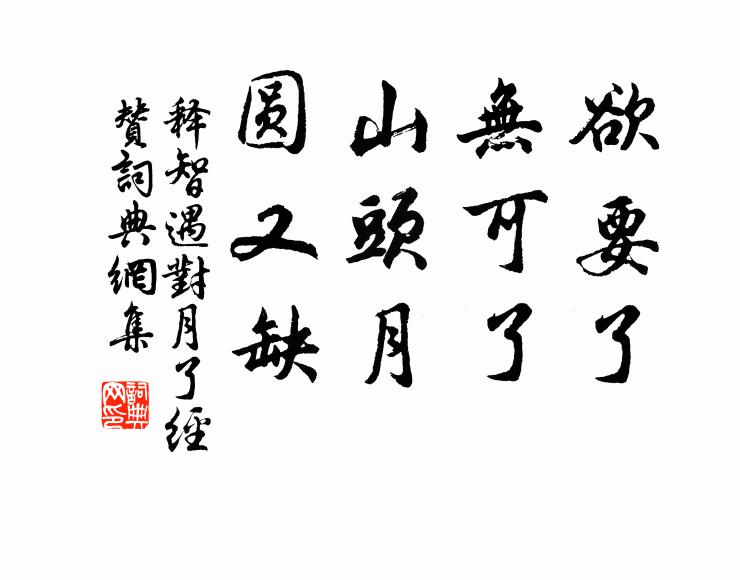 欲要了
無可了
山頭月
圆又缺
释智遇對月了經
贊詞典網集
詞典网印